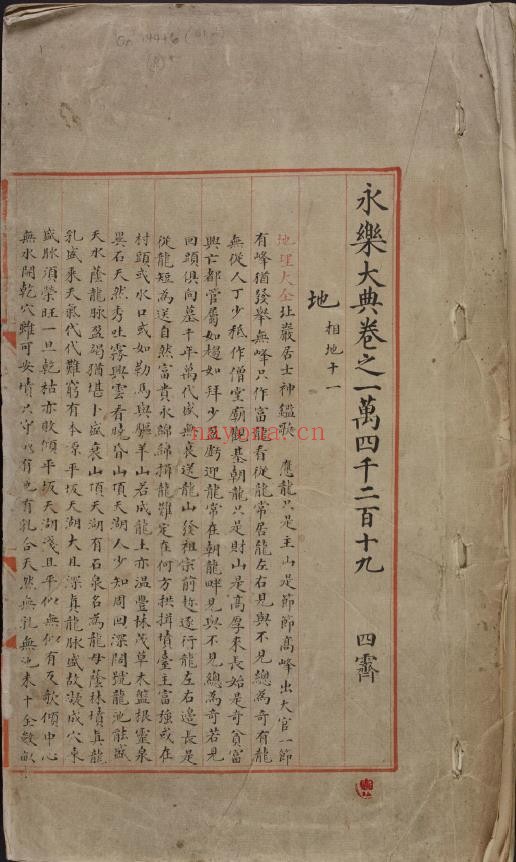 永樂大典卷之一萬四千二百十九 四霽
地 相地十一
地理大全玭巖居士神鑑歌 應龍只是主山是節節高峰出大官一節
有峰猶發舉無峰只作富龍看從龍常居龍左右見與不見總為奇有龍
無從人丁少秪作僧堂廟觀基朝龍只是財山是高厚來長始是奇貧富
興亡都管屬如趨如拜少盈虧迎龍常在朝龍畔見與不見總為奇若見
回頭俱向墓千年萬代盛無衰送龍山發祖宗前趂逐行龍左右邊長是
從龍短為送自然富貴永綿綿揖龍難定在何方拱揖墳臺主富強或在
村頭或水口或如勒馬與驅羊山若成龍土亦温豐林茂草木盤根靈泉
異石天然秀吐霧興雲看曉昏山頂天湖人少知周回深闊號龍池能盛
天水蔭龍脉盈竭猶堪卜盛衰山頂天湖有石泉名為龍母蔭林墳真龍
乳盛來天氣代代難窮有本源平坂天湖大且深真龍脉盛故凝成穴來
盛脉須榮旺一旦乾枯亦敗傾平坂天湖淺且平似無似有及欹傾中心
無水開乾穴雖可安墳只守 有也有乳合天然無乳無池未十全數畝
nayona.cn
Or. 14446